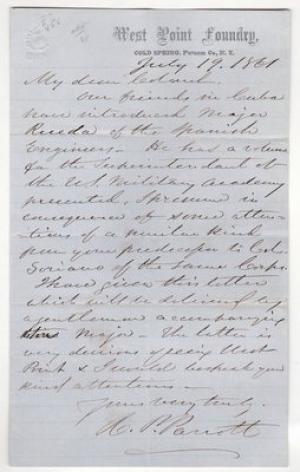 West Point Foundry,
COLD SPRING, Putnam Co., N. Y.
July 19, 1861
My dear Colonel
Our friends in Cuba
have introduced Major
Rueda of the Spanish
Engineers. He has a volume
for the Superintendent of
the U.S. Military Academy
presented, I presume in
consequence of some atten-
tions of a similar kind
from your predecessor to Col.
Soriano of the same Corps.
I have given this letter
which will be delivered by
a gentleman accompanying
Major. The latter is
very desirous of seeing West
Point & I would bespeak your
kind attentions.
Yours very truly,
R. P. Parrott